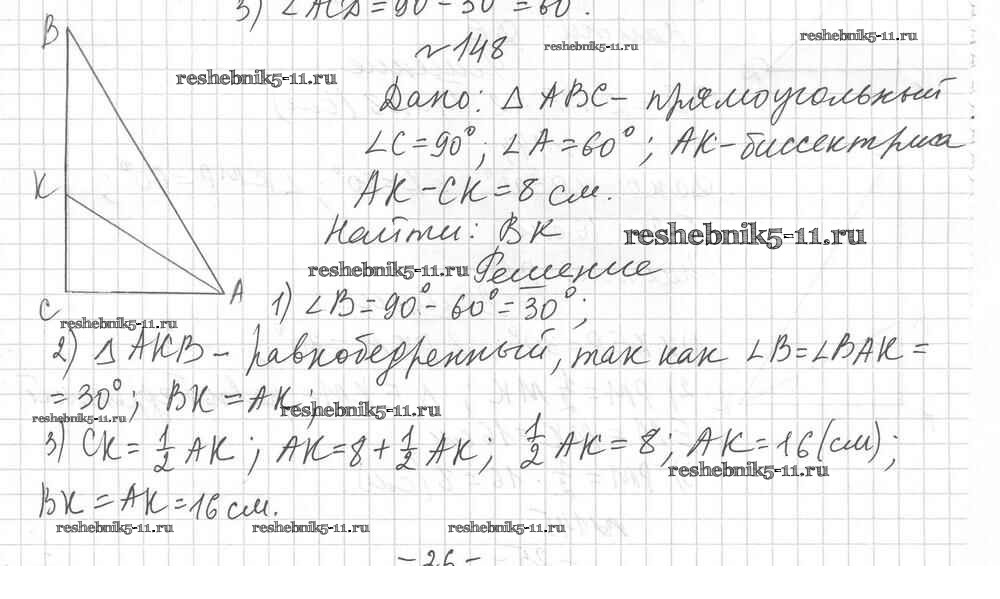 3) ∠ACD = 90° - 30° = 60°.
B
№148
reshebnik5-11.ru
reshebnik5-11.ru
reshebnik5-11.ru
Дано: △ ABC - прямоугольный
∠C = 90°; ∠A = 60°; AK - биссектриса
K
AK - CK = 8 см.
Найти: BK
reshebnik5-11.ru
reshebnik5-11.ru
Решение
C
A
1) ∠B = 90° - 60° = 30°;
reshebnik5-11.ru
2) △ AKB - равнобедренный, так как ∠B = ∠BAK =
= 30°; BK = AK;
reshebnik5-11.ru
reshebnik5-11.ru
3) CK = 1/2 AK; AK = 8 + 1/2 AK; 1/2 AK = 8; AK = 16 (см);
reshebnik5-11.ru
BK = AK = 16 см.
reshebnik5-11.ru
reshebnik5-11.ru
reshebnik5-11.ru
- 26 -